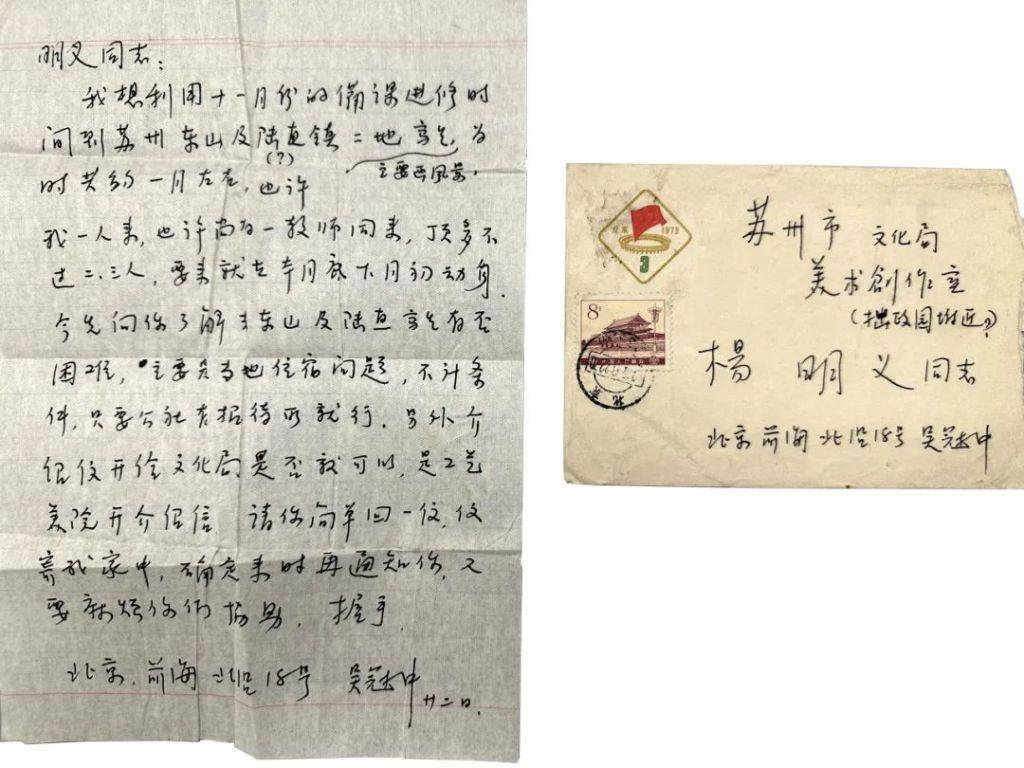 明义同志：
我想利用十一月份的备课进修时
间到苏州东山及陆直镇二地写生，为
(？)
主要画风景，
时共约一月左右，也许
我一人来，也许尚有一教师同来，顶多不
过二、三人，要来就在本月底下月初动身，
今先向你了解去东山及陆直写生有否
困难，主要是当地住宿问题，不计条
件，只要公社有招待所就行。另外介
绍信开给文化局是否就可以，是工艺
美院开介绍信 请你简单回一信，信
寄我家中，确定来时再通知你，又
要麻烦你们协助。 握手
北京．前海北沿18号 吴冠中
廿二日．
北京 1973
3
8分
苏州市 文化局
美术創作室
(拙政园附近？)
楊明义同志
北京前海北沿18号 吴冠中